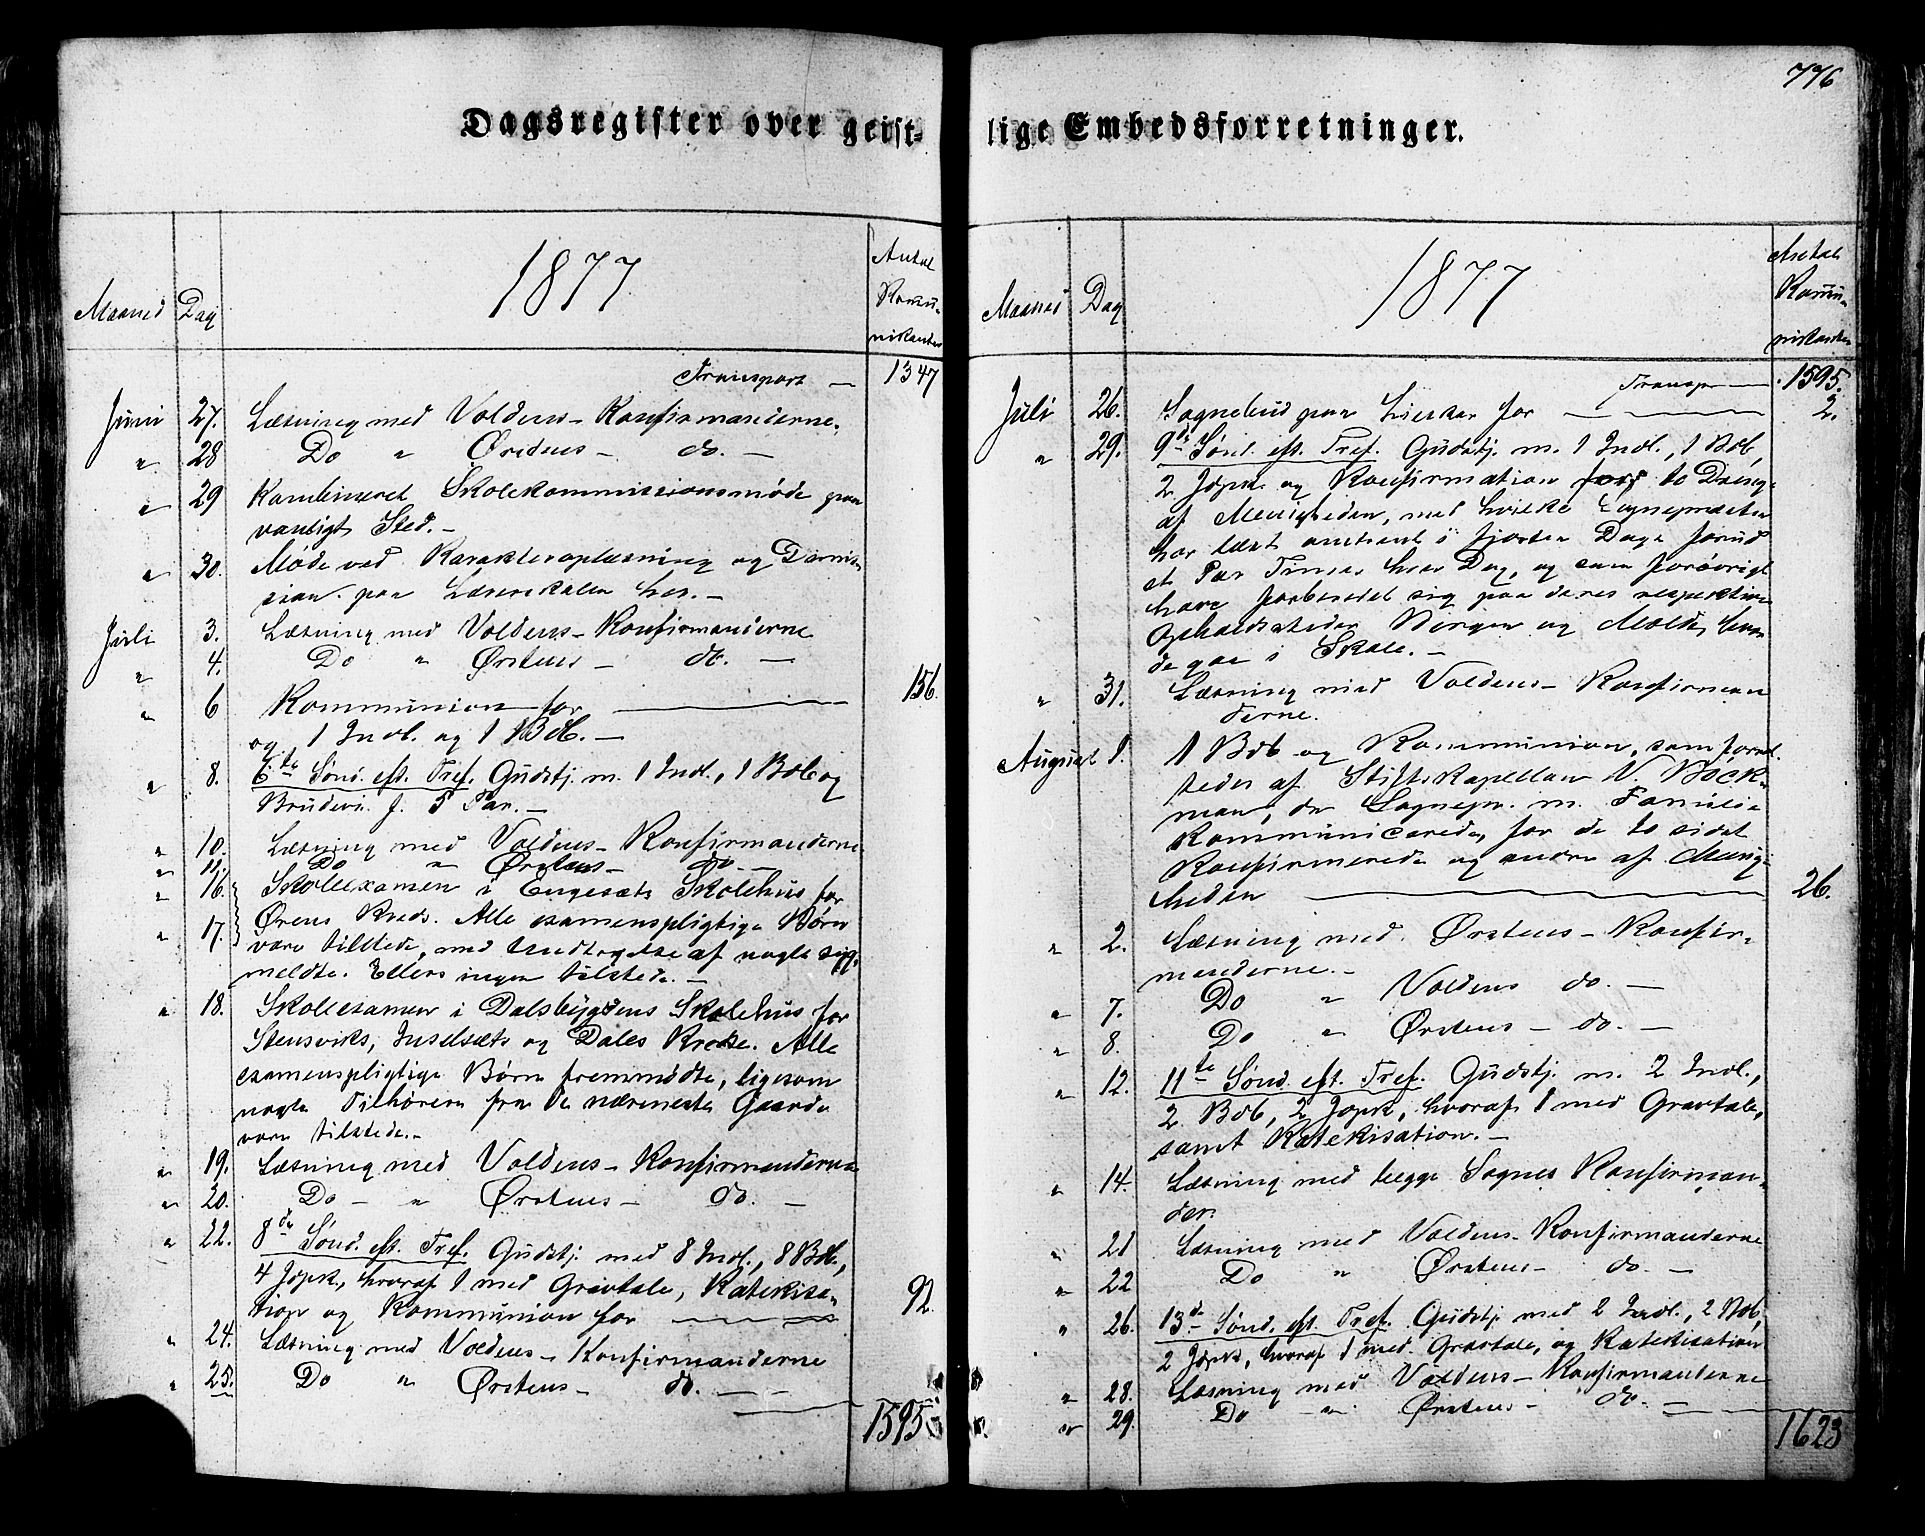 776
Dagsregister over geist-
lige Embedsforretninger.
Maaned Dag 1877 Antal Kommu-
nikanter
Transport — 1347
Juni 27. Læsning med Voldens- Konfirmanderne.
" 28 Do " Ørstens - do. -
" 29 Kombineret Skolekommissionsmøde paa
vanligt Sted. -
" 30. Møde ved Karakteroplæsning og Dimis-
sion paa Lærerskolen her. -
Juli 3. Læsning med Voldens- Konfirmanderne
" 4. Do " Ørstens - do. -
" 6 Kommunion for — 156.
og 1 Indl. og 1 BDb. -
" 8. 6te Sønd. eft. Tref. Gudstj. m. 1 Indl., 1 Bdb og
Brudevi. f. 5 Par. -
" 10. Læsning med Voldens- Konfirmanderne
" 11. Do " Ørstens - do. -
" 16. Skoleexamen i Engesæts Skolehus for
" 17. Ørens Kreds. Alle examenspligtige Børn
vare tilstede, med Undtagelse af nogle syg-
meldte. Ellers ingen tilstede. -
" 18. Skoleexamen i Dalsbygdens Skolehus for
Stensviks, Indselsæts og Dales Kredse. Alle
examenspligtige Børn fremmødte, ligesom
nogle Tilhørere fra de nærmeste Gaarde
vare tilstede. -
" 19. Læsning med Voldens- Konfirmanderne
" 20. Do - " Ørstens - do. -
" 22. 8de Sønd. eft. Tref. Gudstj. med 8 Indl., 8 Bdb.,
4 Jdpk., hvoraf 1 med Gravtale, Katekisa-
tion og Kommunion for — 92.
" 24. Læsning med Voldens- Konfirmanderne
" 25. Do " Ørstens - do. - -
1595
Maaned Dag 1877 Antal
Kommu-
nikanter
Transp — 1595.
Juli 26. Sognebud paa for — 2.
" 29. 9de Sønd. eft. Tref. Gudstj. m. 1 Indl., 1 Bdb,
2 Jdpk. og Konfirmation for to Drenge
af Menigheden, med hvilke Sognepræsten
har læst omtrent i fjorten Dage forud
et Par Timer hver Dag, og som forøvrigt
have forberedet sig paa deres respektive
Opholdssteder Bergen og Molde, hvor
de gaa i Skole. -
" 31. Læsning med Voldens- Konfirman
derne.
August 1. 1 Bdb og Kommunion, som forret-
tedes af Stiftskapellan V. Böck-
man, da Sognepr. m. Familie
kommunicerede, for de to sidst
Konfirmerede og andre af Menig-
heden — 26.
" 2. Læsning med Ørstens- Konfir-
manderne. -
" 7. Do " Voldens do. -
" 8. Do " Ørstens - do. -
" 12. 11te Sønd. eft. Tref. Gudstj. m. 2 Indl.,
2 Bdb, 2 Jdpk., hvoraf 1 med Gravtale,
samt Katekisation. -
" 14. Læsning med begge Sognes Konfirman-
der.
" 21 Læsning med Voldens- Konfirmanderne
" 22 Do " Ørstens - do. -
" 26. 13de Sønd. eft. Tref. Gudstj. med 2 Indl., 2 Bdb,
2 Jdpk., hvoraf 1 med Gravtale, og Katekisation
" 28. Læsning med Voldens- Konfirmanderne
" 29. Do " Ørstens - do. -
1623